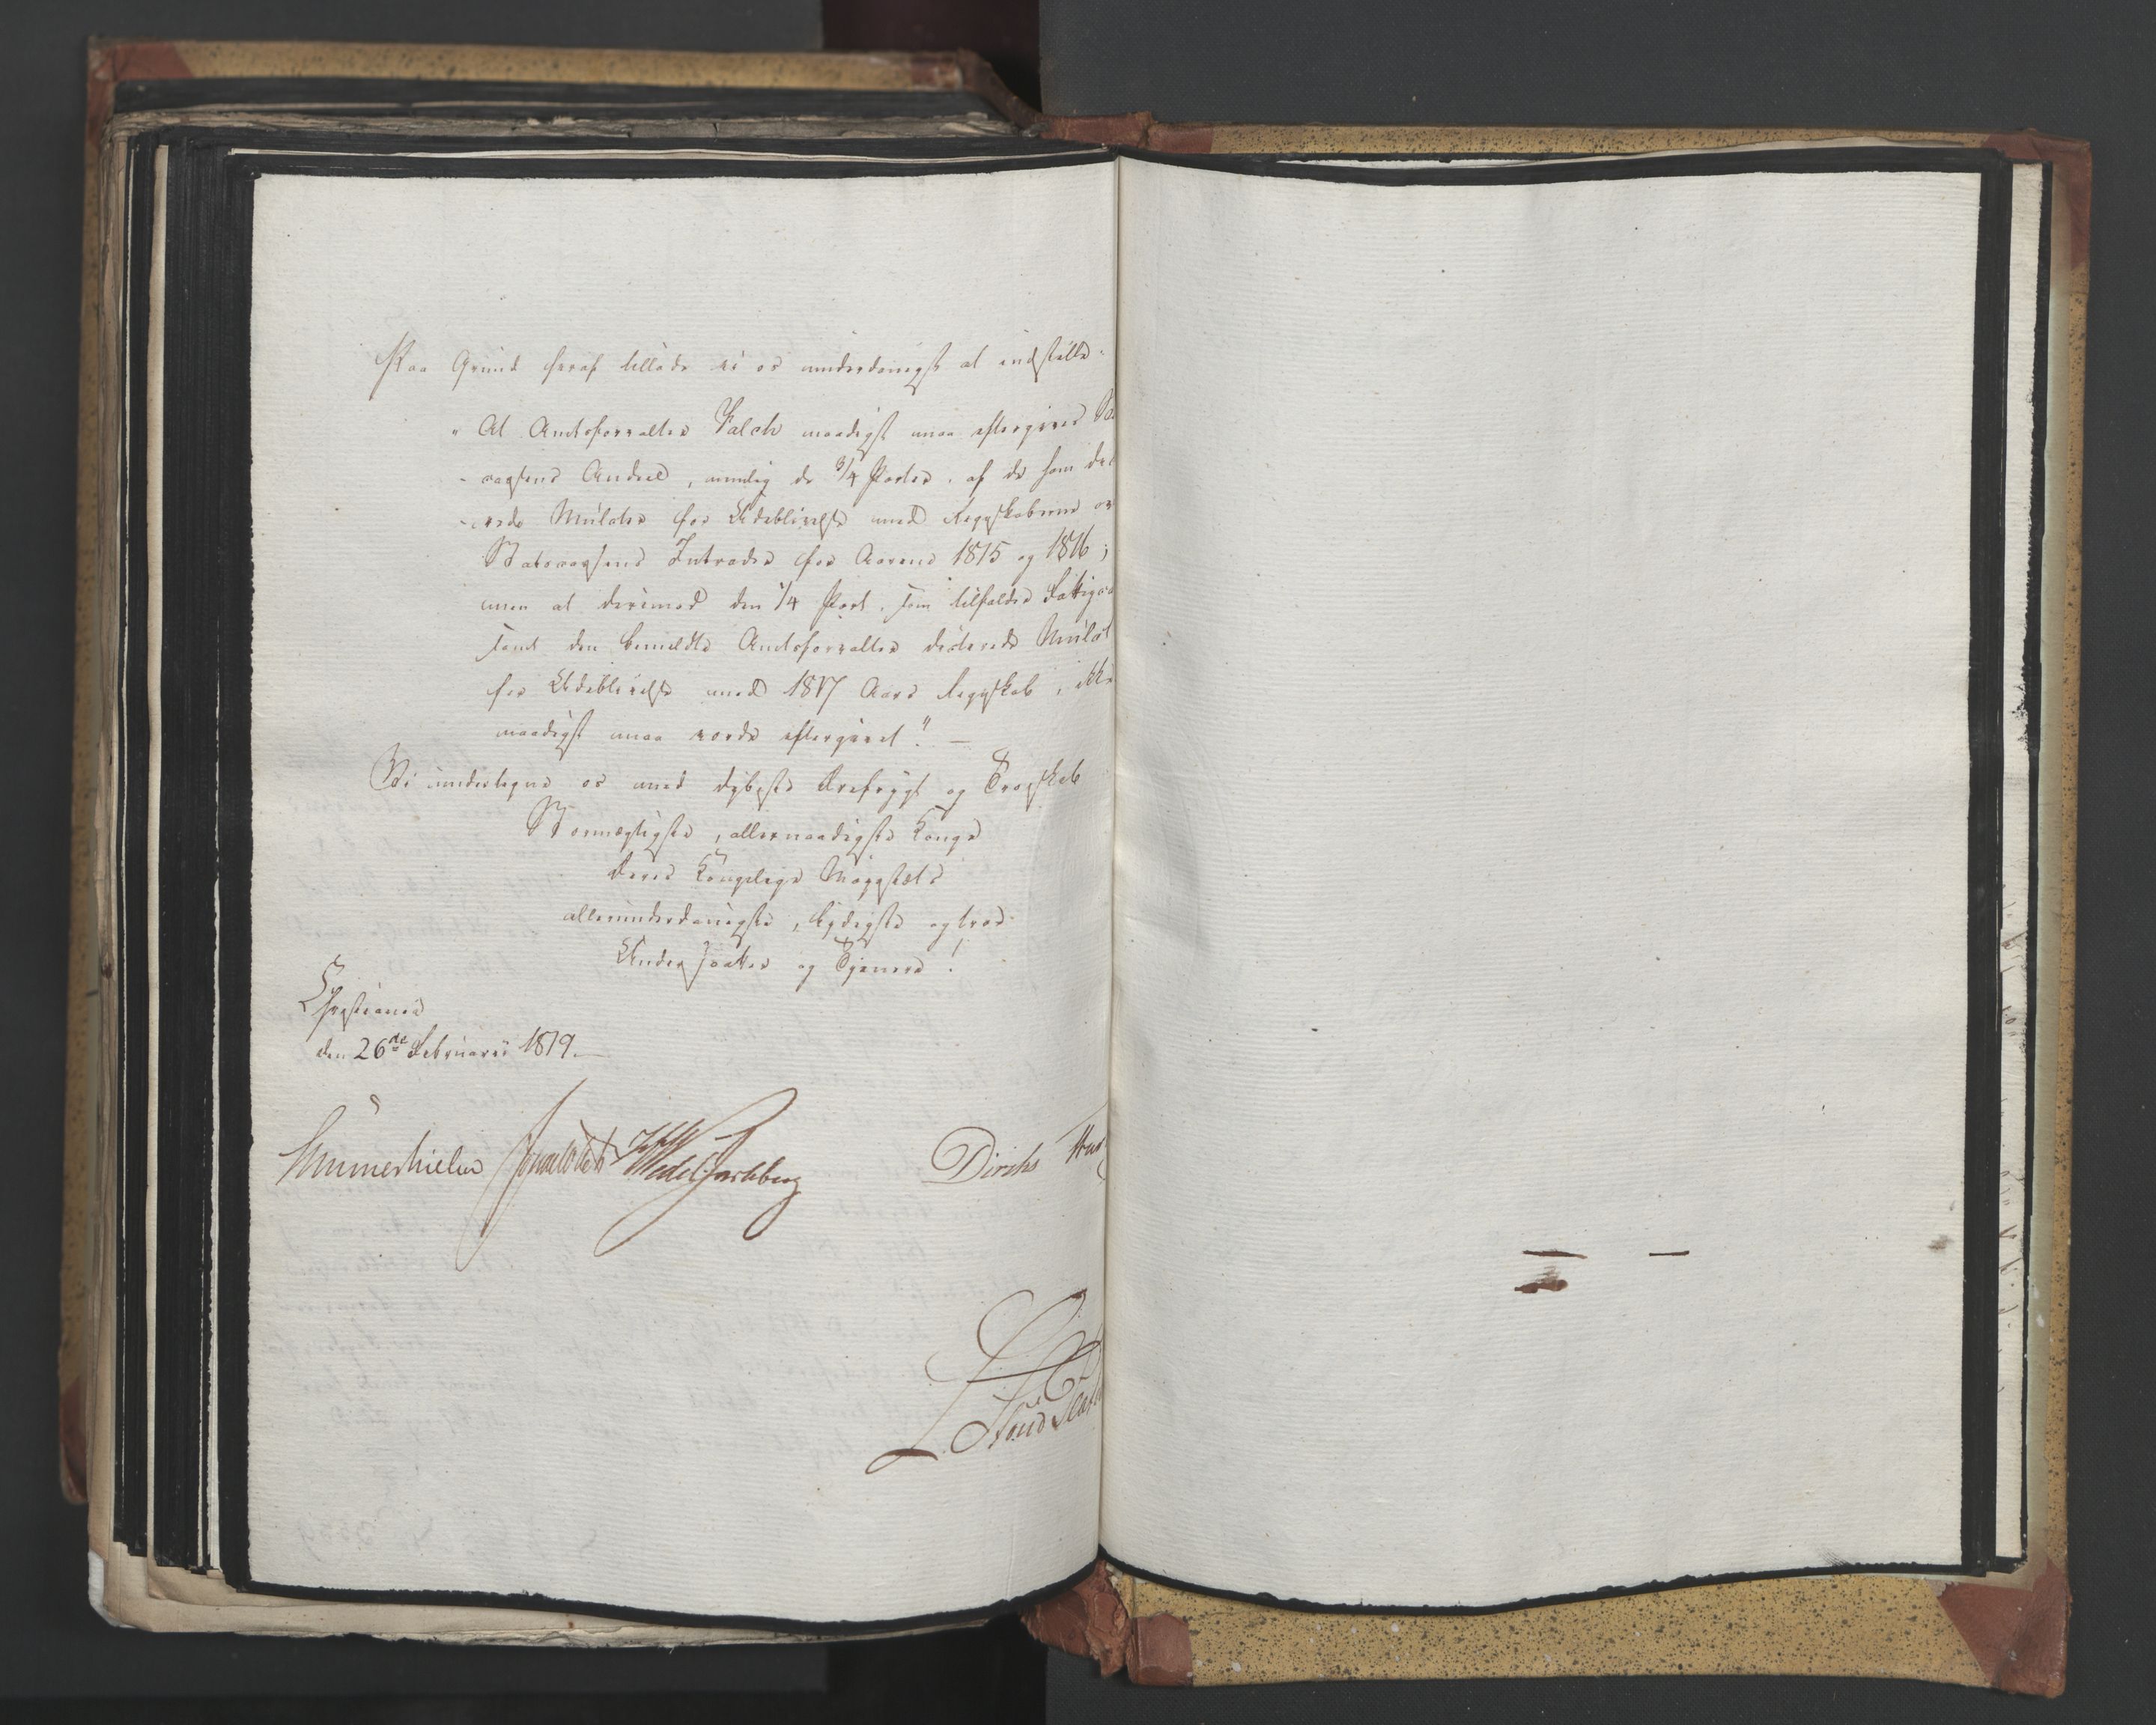 Paa Grund heraf tillade vi os underdanigst at indstille:
"At Amtsforvalter Falch naadigst maa eftergives Sta
-cassens Andeel, nemlig de 3/4 Parter, af de ham dic
-erede Mulcter for Udeblivelse med Regnskaberne ov
Statscassens Intrader for Aarene 1815 og 1816;
men at derimod den 1/4 Part, som tilfalder Fattigva
samt den bemeldte Amtsforvalter dicterede Mulct
for Udeblivelse med 1817 Aars Regnskab, ikke
naadigst maa vorde eftergivet". —
Vi undertegne os med dybeste Ærefrygt og Troeskab
Stormægtigste, allernaadigste Konge
Deres Kongelige Majestæts
allerunderdanigste, lydigste og troe
Undersaatter og Tjenere!
Christiania
den 26de Februarii 1819.
Sommerhielm Jonas Collett Wedel Jarlsberg Diriks